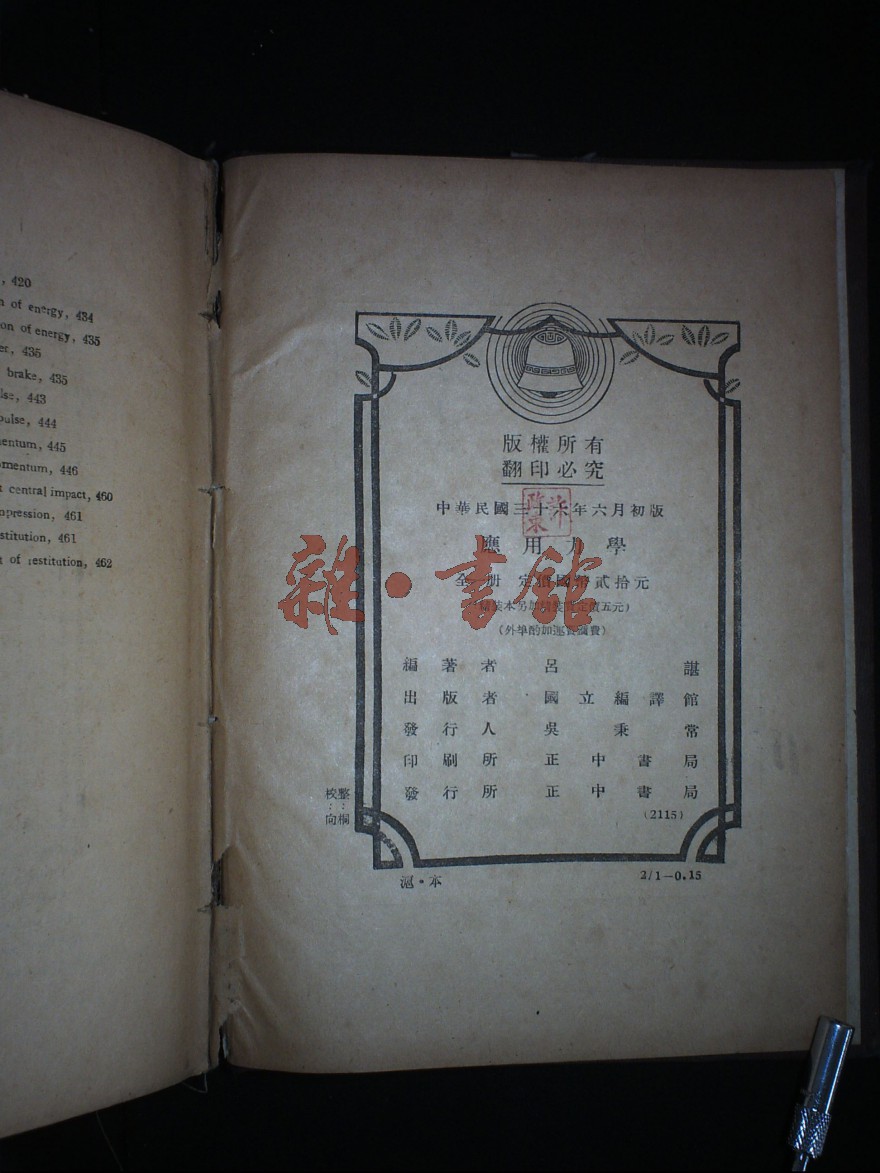 , 420
n of energy, 434
on of energy, 435
er, 435
brake, 435
lse, 443
pulse, 444
mentum, 445
omentum, 446
t central impact, 460
mpression, 461
stitution, 461
t of restitution, 462
版權所有
翻印必究
中華民國三十六年六月初版
應用力學
全一册 定價國幣貳拾元
(外埠酌加運費滙費)
編著者 呂 諶
出版者 國立編譯館
發行人 吳秉常
印刷所 正中書局
發行所 正中書局
(2115)
校整
: :
向欄
滬・本
2/1—0.15
雜・書館